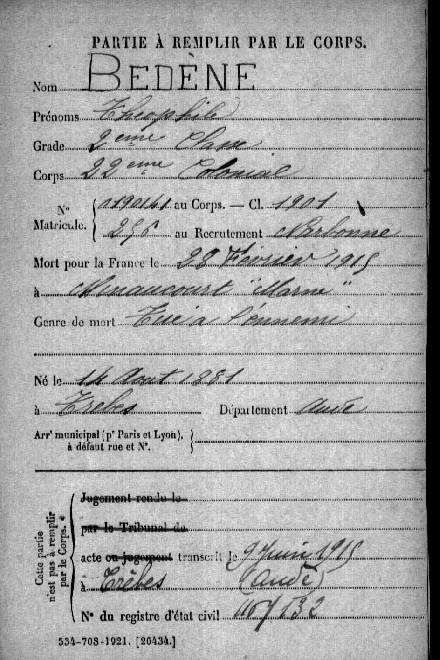 PARTIE À REMPLIR PAR LE CORPS.
Nom BEDÈNE
Prénoms Théophile
Grade 2ème Classe
Corps 22ème Colonial
N° Matricule. { 0190141 au Corps. — Cl. 1901
276 au Recrutement Narbonne
Mort pour la France le 28 Février 1915
à Minaucourt "Marne"
Genre de mort Tué à l'ennemi
Né le 14 Aout 1881
à Trèbes Département Aude
Arr' municipal (p' Paris et Lyon), à défaut rue et N°.
Cette partie n'est pas à remplir par le Corps.
Jugement rendu le
par le Tribunal de
acte ou jugement transcrit le 9 Juin 1915
à Trèbes (Aude)
N° du registre d'état civil
534-708-1921. [26434.]